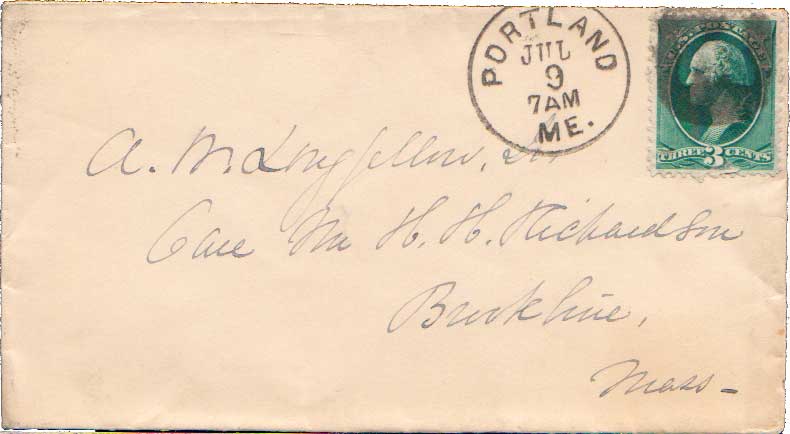 PORTLAND
JUL
9
7AM
ME.
U.S. POSTAGE
THREE 3 CENTS
A. W. Longfellow, Jr
Care Mr H. H. Richardson
Brookline,
Mass-